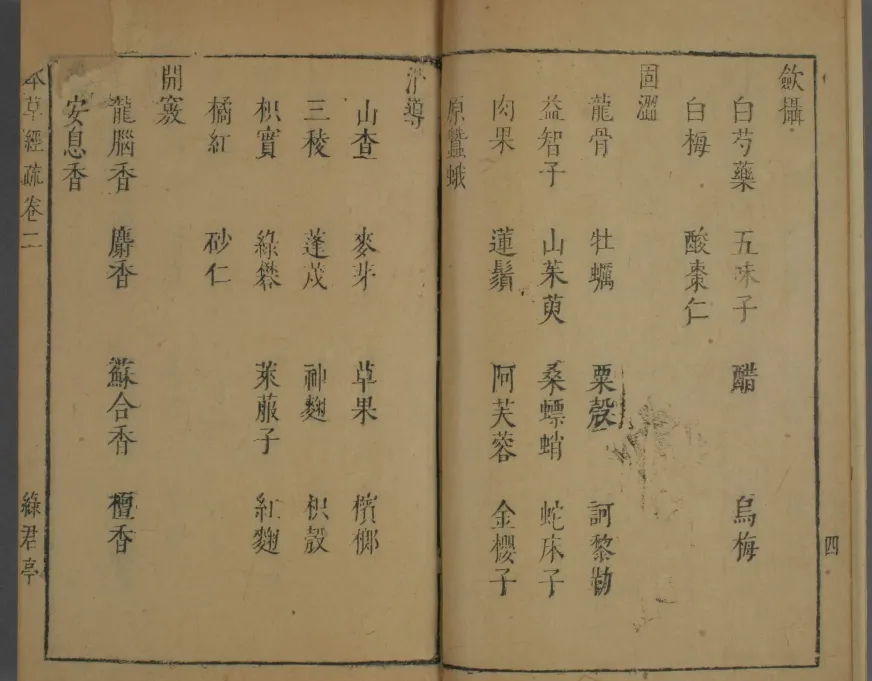 四
斂攝
白芍藥 五味子 醋 烏梅
白梅 酸棗仁
固澀
龍骨 牡蠣 粟殼 訶黎勒
益智子 山茱萸 桑螵蛸 蛇床子
肉果 蓮鬚 阿芙蓉 金櫻子
原蠶蛾
消導
山查 麥芽 草果 檳榔
三稜 蓬茂 神麯 枳殼
枳實 綠礬 萊菔子 紅麯
橘紅 砂仁
開竅
龍腦香 麝香 蘇合香 檀香
安息香
本草經疏卷二 綠君亭